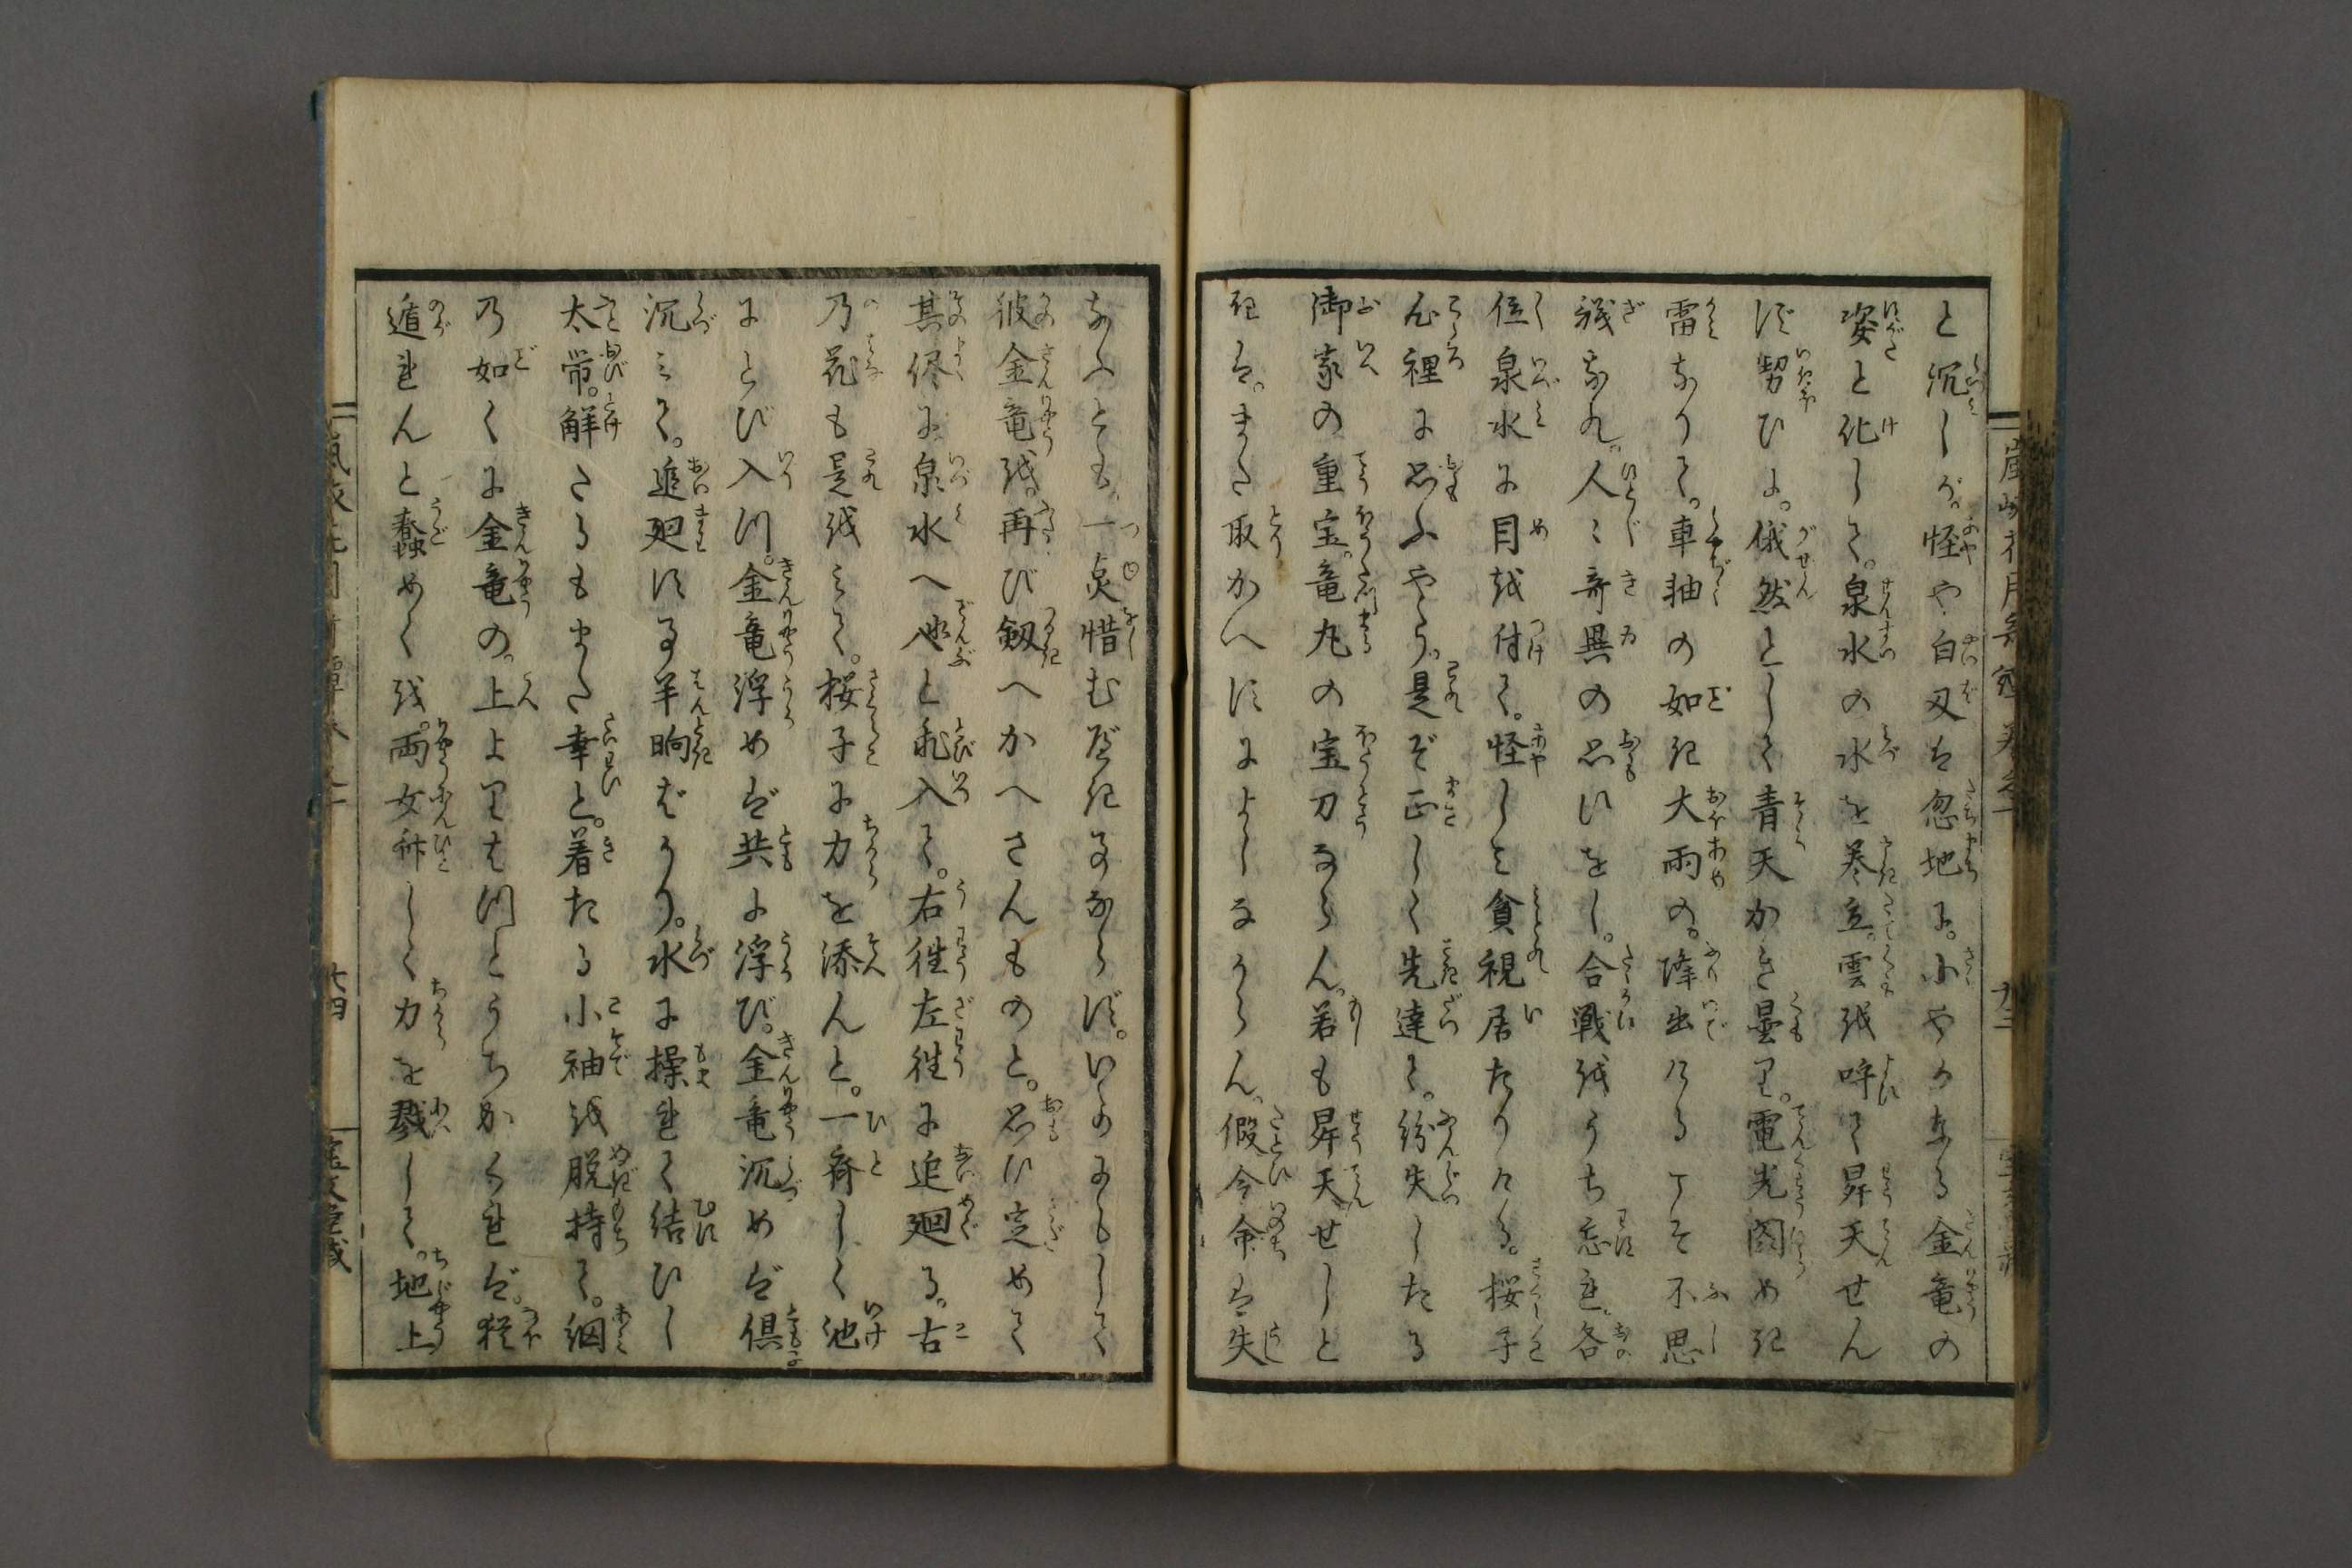 と沈しが。怪や白刄は忽地に。小やかなる金竜の
姿と化して。泉水の水を巻立。雲を呼て昇天せん
ず勢ひに。俄然として青天かき曇り。電光閃めき
雷なりて。車軸の如き大雨の。降出けるこそ不思
議なれ。人々奇異の思ひをし。合戦をうち忘れ。各
位泉水に目を付て。怪しと貪視居たりけり。桜子
心裡に思ふやう。是ぞ正しく先達て。紛失したる
御家の重宝。竜丸の宝刀ならん。若も昇天せしと
きは。また取かへすによしなからん。假令命は失
なふとも。一点惜むべき事ならず。いかにもして
彼金竜を。再び劔へかへさんものと。思ひ定めて
其侭に泉水へと飛入て。右徃左徃に追廻る。古
乃花も是をみて。桜子に力を添んと。一斉しく池
にとび入つ。金竜浮めば共に浮び。金竜沈めば倶
沈みて。追廻する半晌ばかり。水に操れて結ひし
太帯。解たるもまた幸と。着たる小袖を脱持て。網
乃如くに金竜の。上よりはつとうちかくれば。猶
遁れんと蠢めくを。両女斉しく力を戮して。地上
廿四